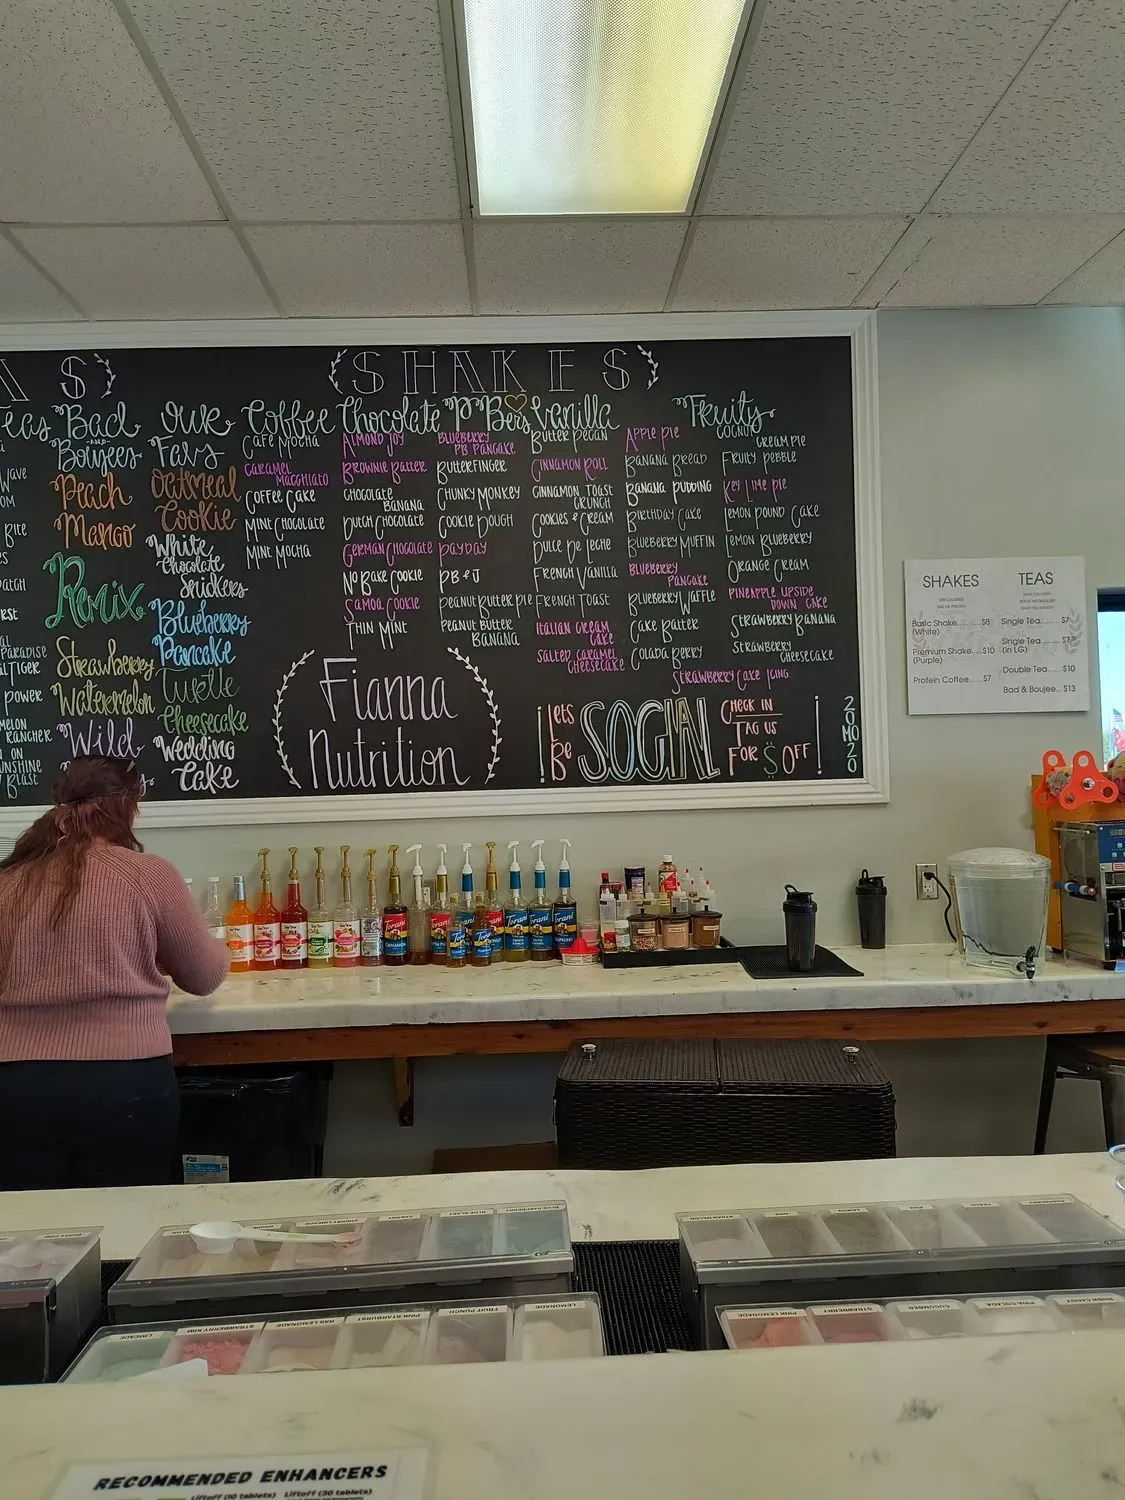 S
SHAKES
Bad
AND
Boujees
Peach
Mango
Remix
Strawberry
Watermelon
Wild
Our
Favs
Oatmeal
Cookie
White
Chocolate
Snickers
Blueberry
Pancake
Turtle
Cheesecake
Wedding
Cake
Coffee
CAFE MOCHA
CARAMEL
MACCHIATO
COFFEE CAKE
MINT CHOCOLATE
MINT MOCHA
Chocolate
ALMOND JOY
BROWNIE BATTER
CHOCOLATE
BANANA
DUTCH CHOCOLATE
GERMAN CHOCOLATE
NO BAKE COOKIE
SAMOA COOKIE
THIN MINT
PBers
BLUEBERRY
PB PANCAKE
BUTTERFINGER
CHUNKY MONKEY
COOKIE DOUGH
PAYDAY
PB & J
PEANUT BUTTER PIE
PEANUT BUTTER
BANANA
Vanilla
BUTTER PECAN
CINNAMON ROLL
CINNAMON TOAST
CRUNCH
COOKIES & CREAM
DULCE DE LECHE
FRENCH VANILLA
FRENCH TOAST
ITALIAN CREAM
CAKE
SALTED CARAMEL
CHEESECAKE
Fruity
APPLE PIE
BANANA BREAD
BANANA PUDDING
BIRTHDAY CAKE
BLUEBERRY MUFFIN
BLUEBERRY
PANCAKE
BLUEBERRY WAFFLE
CAKE BATTER
COLADA BERRY
STRAWBERRY CAKE ICING
COCONUT
CREAM PIE
FRUITY PEBBLE
KEY LIME PIE
LEMON POUND CAKE
LEMON BLUEBERRY
ORANGE CREAM
PINEAPPLE UPSIDE
DOWN CAKE
STRAWBERRY BANANA
STRAWBERRY
CHEESECAKE
Fianna
Nutrition
LETS
BE
SOCIAL
CHECK IN
TAG US
FOR $ OFF
SHAKES
Basic Shake........$8
(White)
Premium Shake...$10
(Purple)
Protein Coffee....$7
TEAS
Single Tea..........$7
Single Tea
(in LG)
Double Tea.....$10
Bad & Boujee....$13
Torani
Torani
Torani
LEMONADE
FRUIT PUNCH
PINK STARBURST
RAS LEMONADE
STRAWBERRY KIWI
LIMEADE
PINK LEMONADE
STRAWBERRY
CUCUMBER
PINA COLADA
RECOMMENDED ENHANCERS
Liftoff (10 tablets) Liftoff (30 tablets)